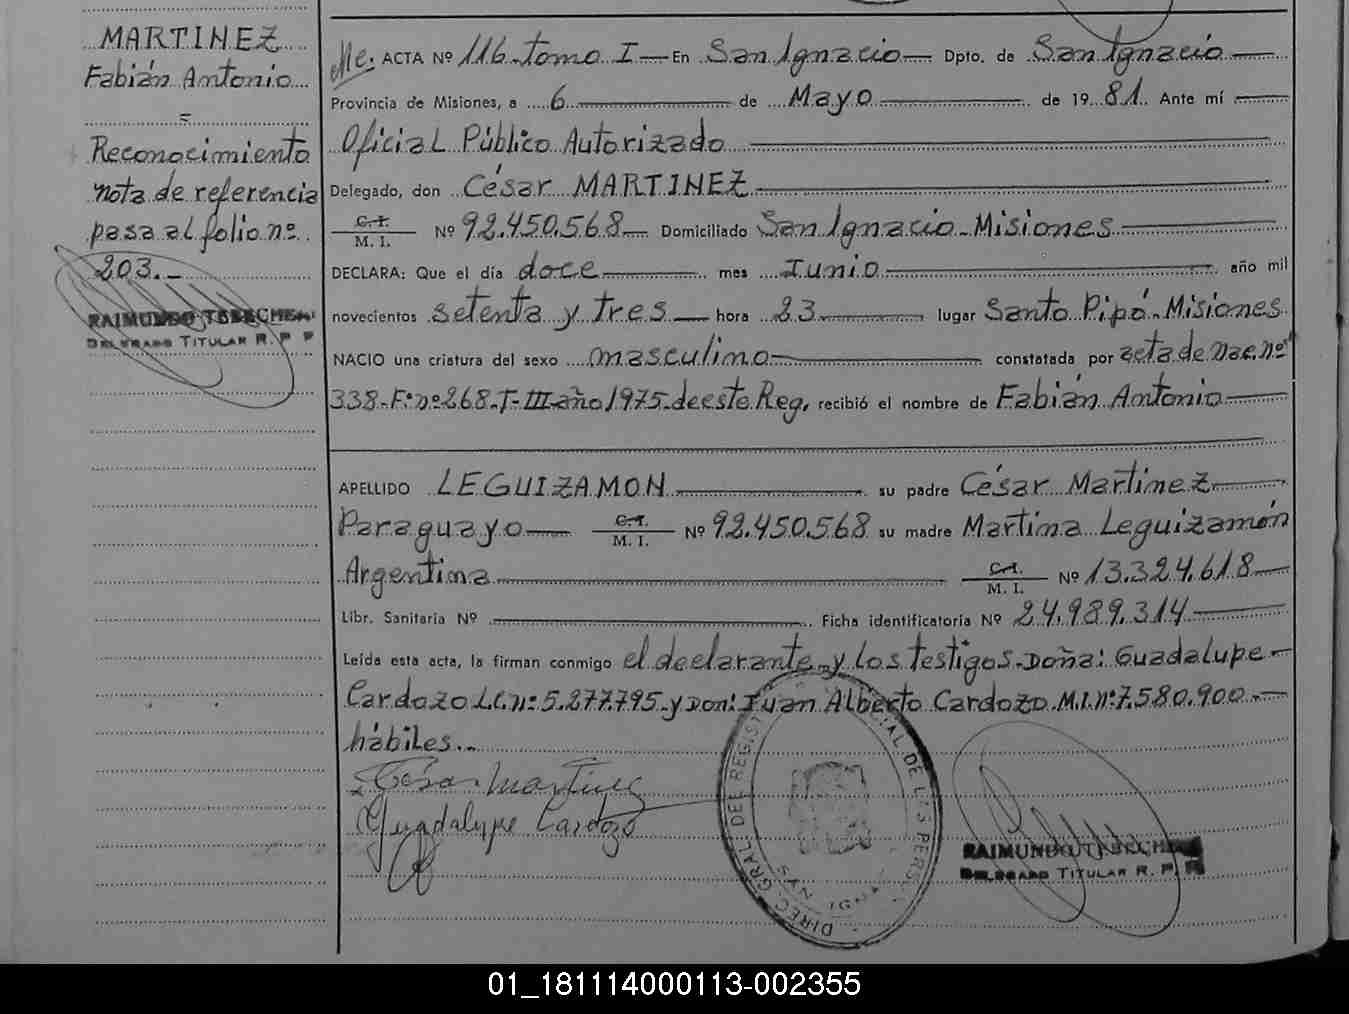 MARTINEZ
Fabián Antonio
=
Reconocimiento
nota de referencia
pasa al folio nº
203.-
RAIMUNDO TESECHEN
DELEGADO TITULAR R. P. P
ACTA Nº 116-Tomo I — En San Ignacio — Dpto. de San Ignacio
Provincia de Misiones, a 6 de Mayo de 1981. Ante mí
Oficial Público Autorizado
Delegado, don César MARTINEZ
C. I.
M. I. Nº 92.450.568 Domiciliado San Ignacio - Misiones
DECLARA: Que el día doce mes Junio año mil
novecientos setenta y tres hora 23 lugar Santo Pipó - Misiones
NACIO una criatura del sexo masculino constatada por acta de nac. nº
338-Fº nº 268-T-III-año 1975-de este Reg. recibió el nombre de Fabián Antonio
APELLIDO LEGUIZAMON su padre César Martinez
Paraguayo C. I.
M. I. Nº 92.450.568 su madre Martina Leguizamón
Argentina C. I.
M. I. Nº 13.324.618
Libr. Sanitaria Nº Ficha identificatoria Nº 24.989.314
Leída esta acta, la firman conmigo el declarante y los testigos - Doña: Guadalupe
Cardozo L.C. nº: 5.277.795 - y Don: Juan Alberto Cardozo M.I. nº 7.580.900
hábiles.-
César Martinez
Guadalupe Cardozo
DIREC. GRAL. DEL REGIST CIAL DE LAS PERS.
RAIMUNDO TESECHEN
DELEGADO TITULAR R. P. P
01_181114000113-002355